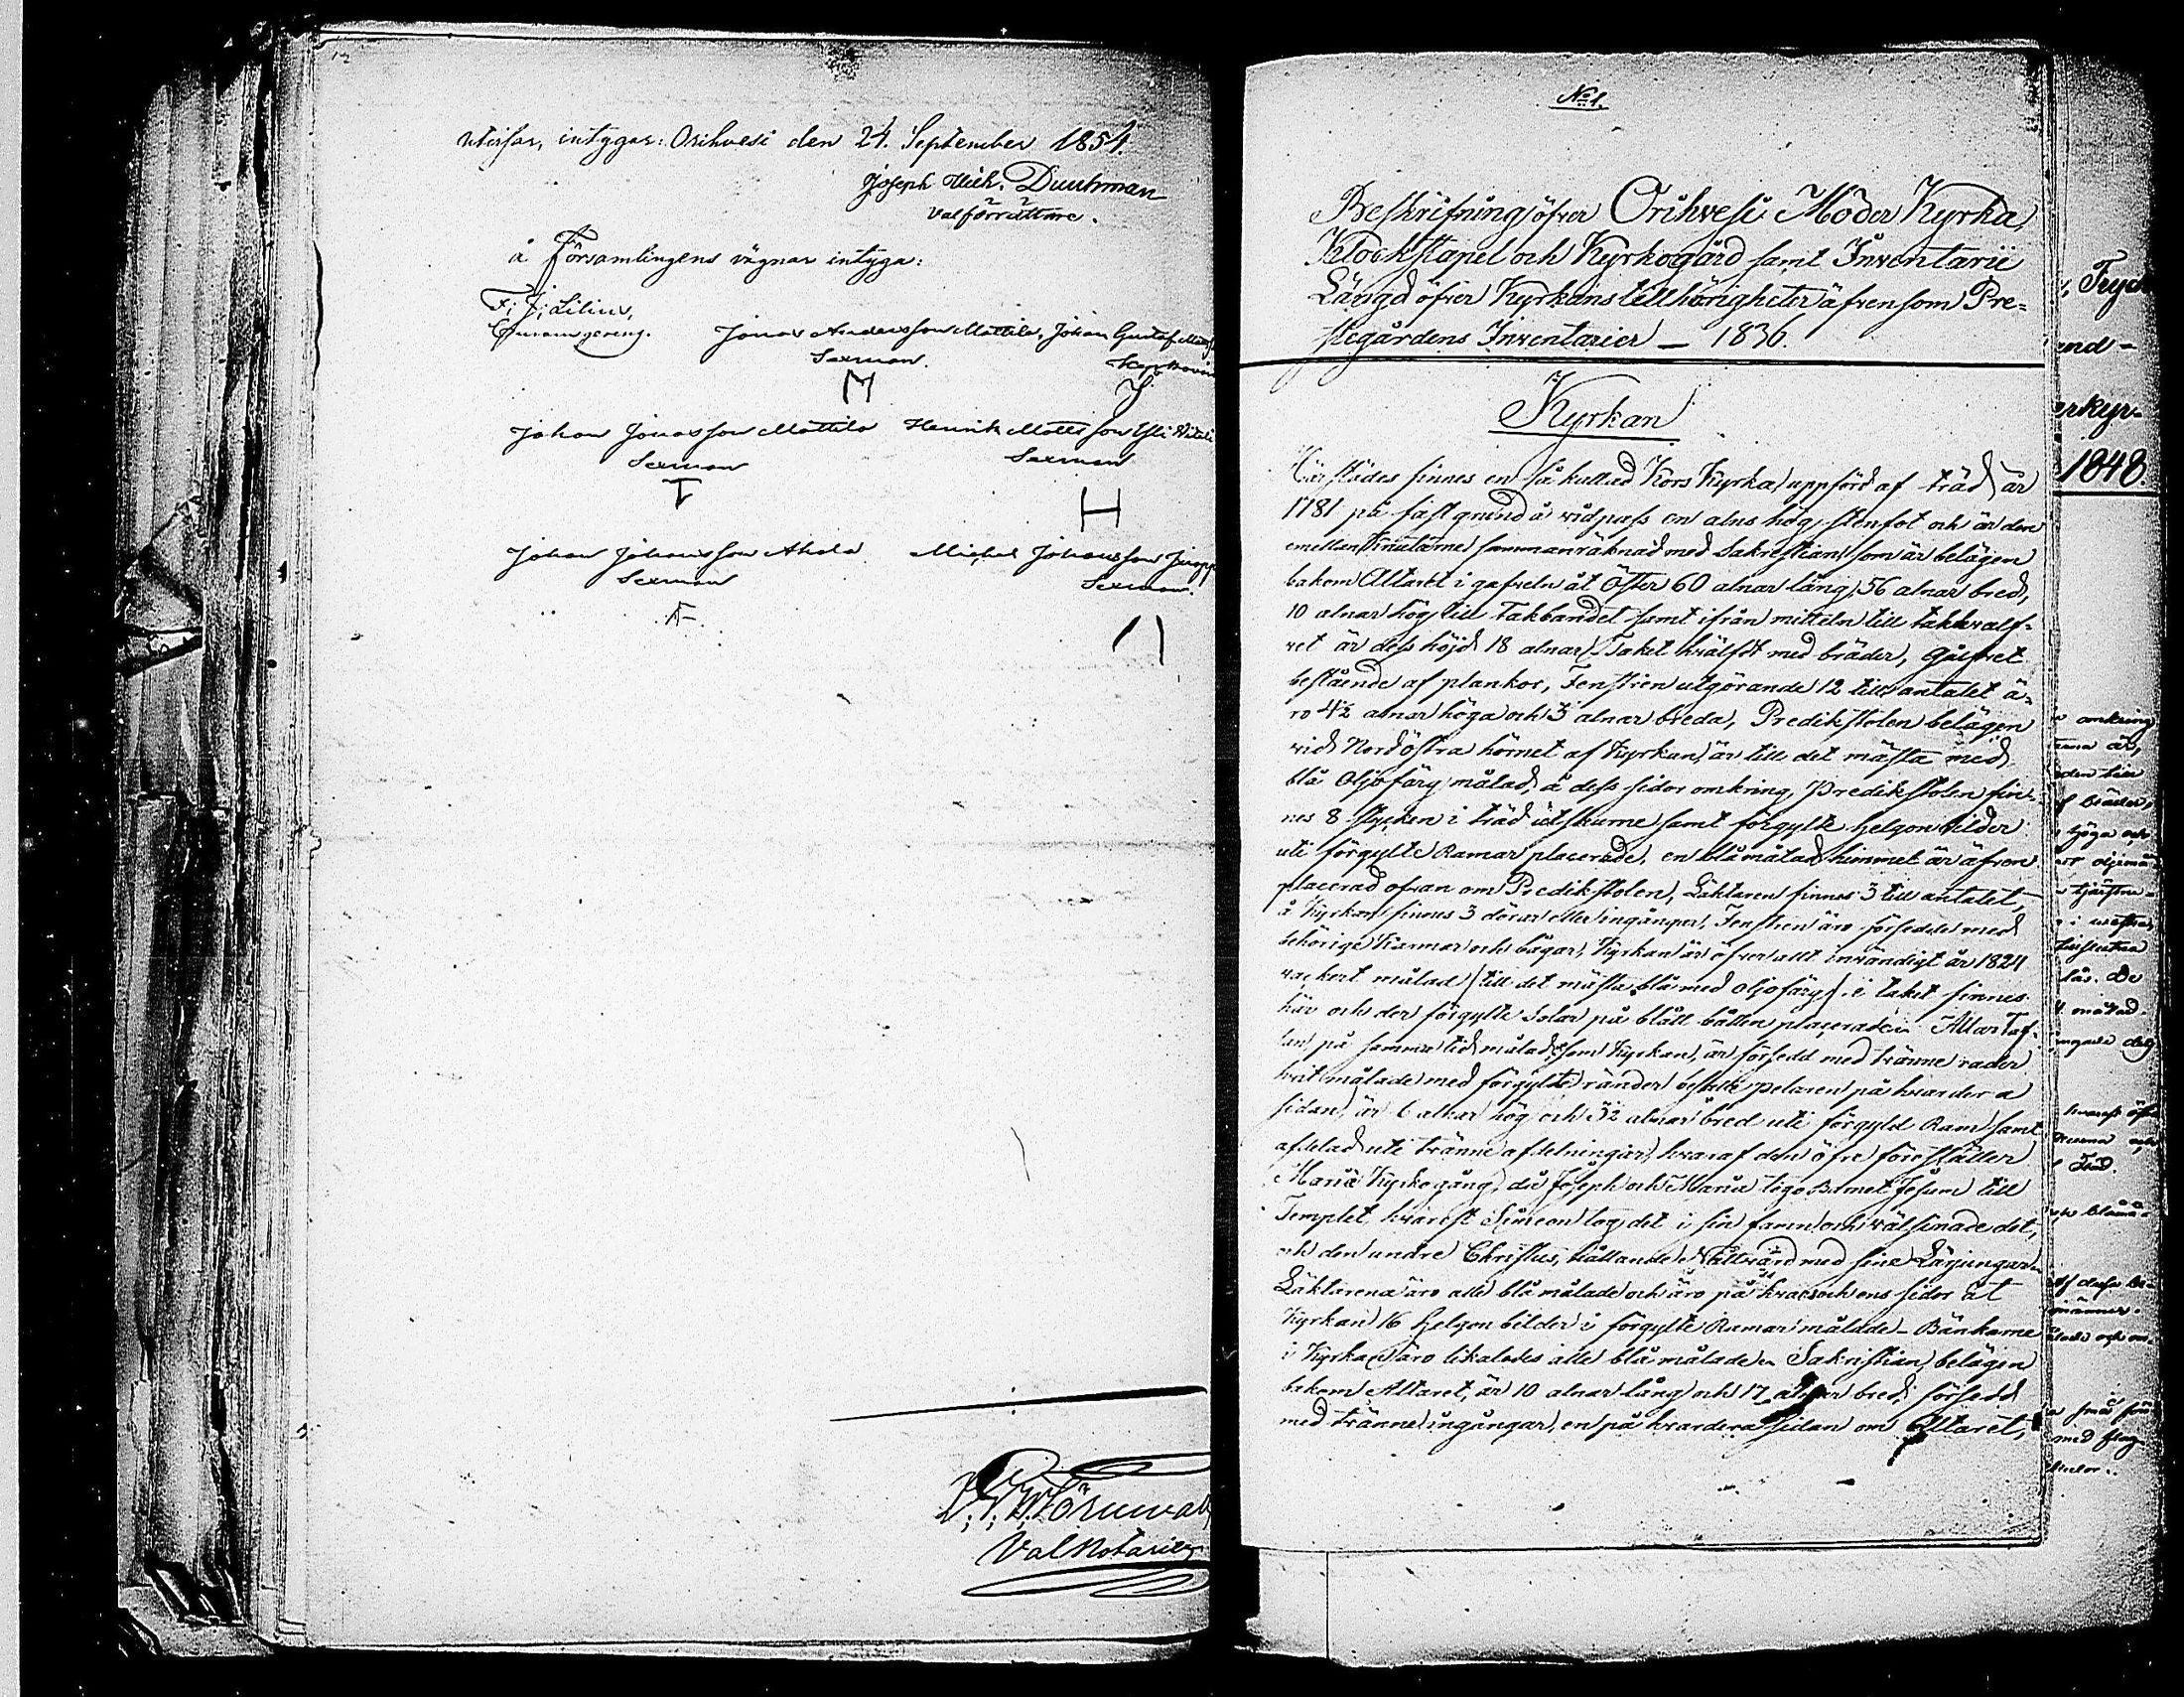 utvisar, intygar: Orihvesi den 24. September 1854.
Joseph Mich. Duuhman
Valförrättare.
å Församlingens vägnar intyga:
F: J: Lilius,
Jonas Andersson Mattila, Johan Gustaf
Sexman.
M
Johan Jonasson Mattila Henrik Mattsson Yli
Sexman Sexman
T H
Johan Johansson Ahola Michel Johansson
Sexman Sexman.
Val Notarie
No 1.
Beskrifning öfver Orihvesi Moder Kyrka,
Klockstapel och Kyrkogård samt Inventarii
Längd öfver Kyrkans tillhörigheter äfvensom Pre-
stegårdens Inventarier _ 1836.
Kyrkan
Härstädes finnes en så kallad Kors Kyrka, uppförd af träd år
1781 på fast grund å vidpass en alns hög stenfot och är den
emellan knutarne sammanräknad med Sakristian, som är belägen
bakom Altaret i gafveln åt Öster 60 alnar lång, 56 alnar bred,
10 alnar hög till takbandet samt ifrån mitteln till takhvalf-
vet är dess höjd 18 alnar, Taket hvälfdt med bräder, gålfvet
bestående af plankor, Fenstren utgörande 12 till antalet ä-
ro 4½ alnar höga och 3 alnar breda, Predikstolen belägen
vid Nordöstra hörnet af Kyrkan, är till det mästa med
blå Oljofärg målad, å dess sidor omkring Predikstolen fin-
nes 8 stycken i träd utskurne samt förgylte helgon bilder
uti förgylte Ramar placerade, en blåmålad himmel är äfven
placerad ofvan om Predikstolen, Läktaren finnes 3 till antalet,
å Kyrkan finnes 3 dörar eller ingångar, Fenstren äro försedde med
behörige Karmar och bågar, Kyrkan är öfver allt invändigt år 1824
vackert målad (till det mästa blå med oljofärg), i taket finnes
här och der förgylte Solar på blått båtten placerade. Altar Taf-
lan på samma tid målad som Kyrkan, är försedd med tvänne rader
hvit målade med förgylte ränder pelaren på hvardera
sidan, är 6 alnar hög och 3½ alnar bred uti förgyld Ram samt
afdelad uti tvänne afdelningar, hvaraf den öfre föreställer
Mariä Kyrkogång, då Joseph och Maria togo Barnet Jesum till
Templet hvarest Simeon tog det i sin famn och välsinade det,
och den undre Christus, hållande Nattvard med sine Lärjungar.
Läktarena äro alle blå målade och äro på hvars och ens sidor åt
Kyrkan 16 helgon bilder i förgylte Ramar målade _ Bänkarne
i Kyrkan äro likaledes alle blå målade. Sakristian, belägen
bakom Altaret, är 10 alnar lång och 17 alnar bred; försedd
med tvänne ingångar, en på hvardera sidan om Altaret,
1848.